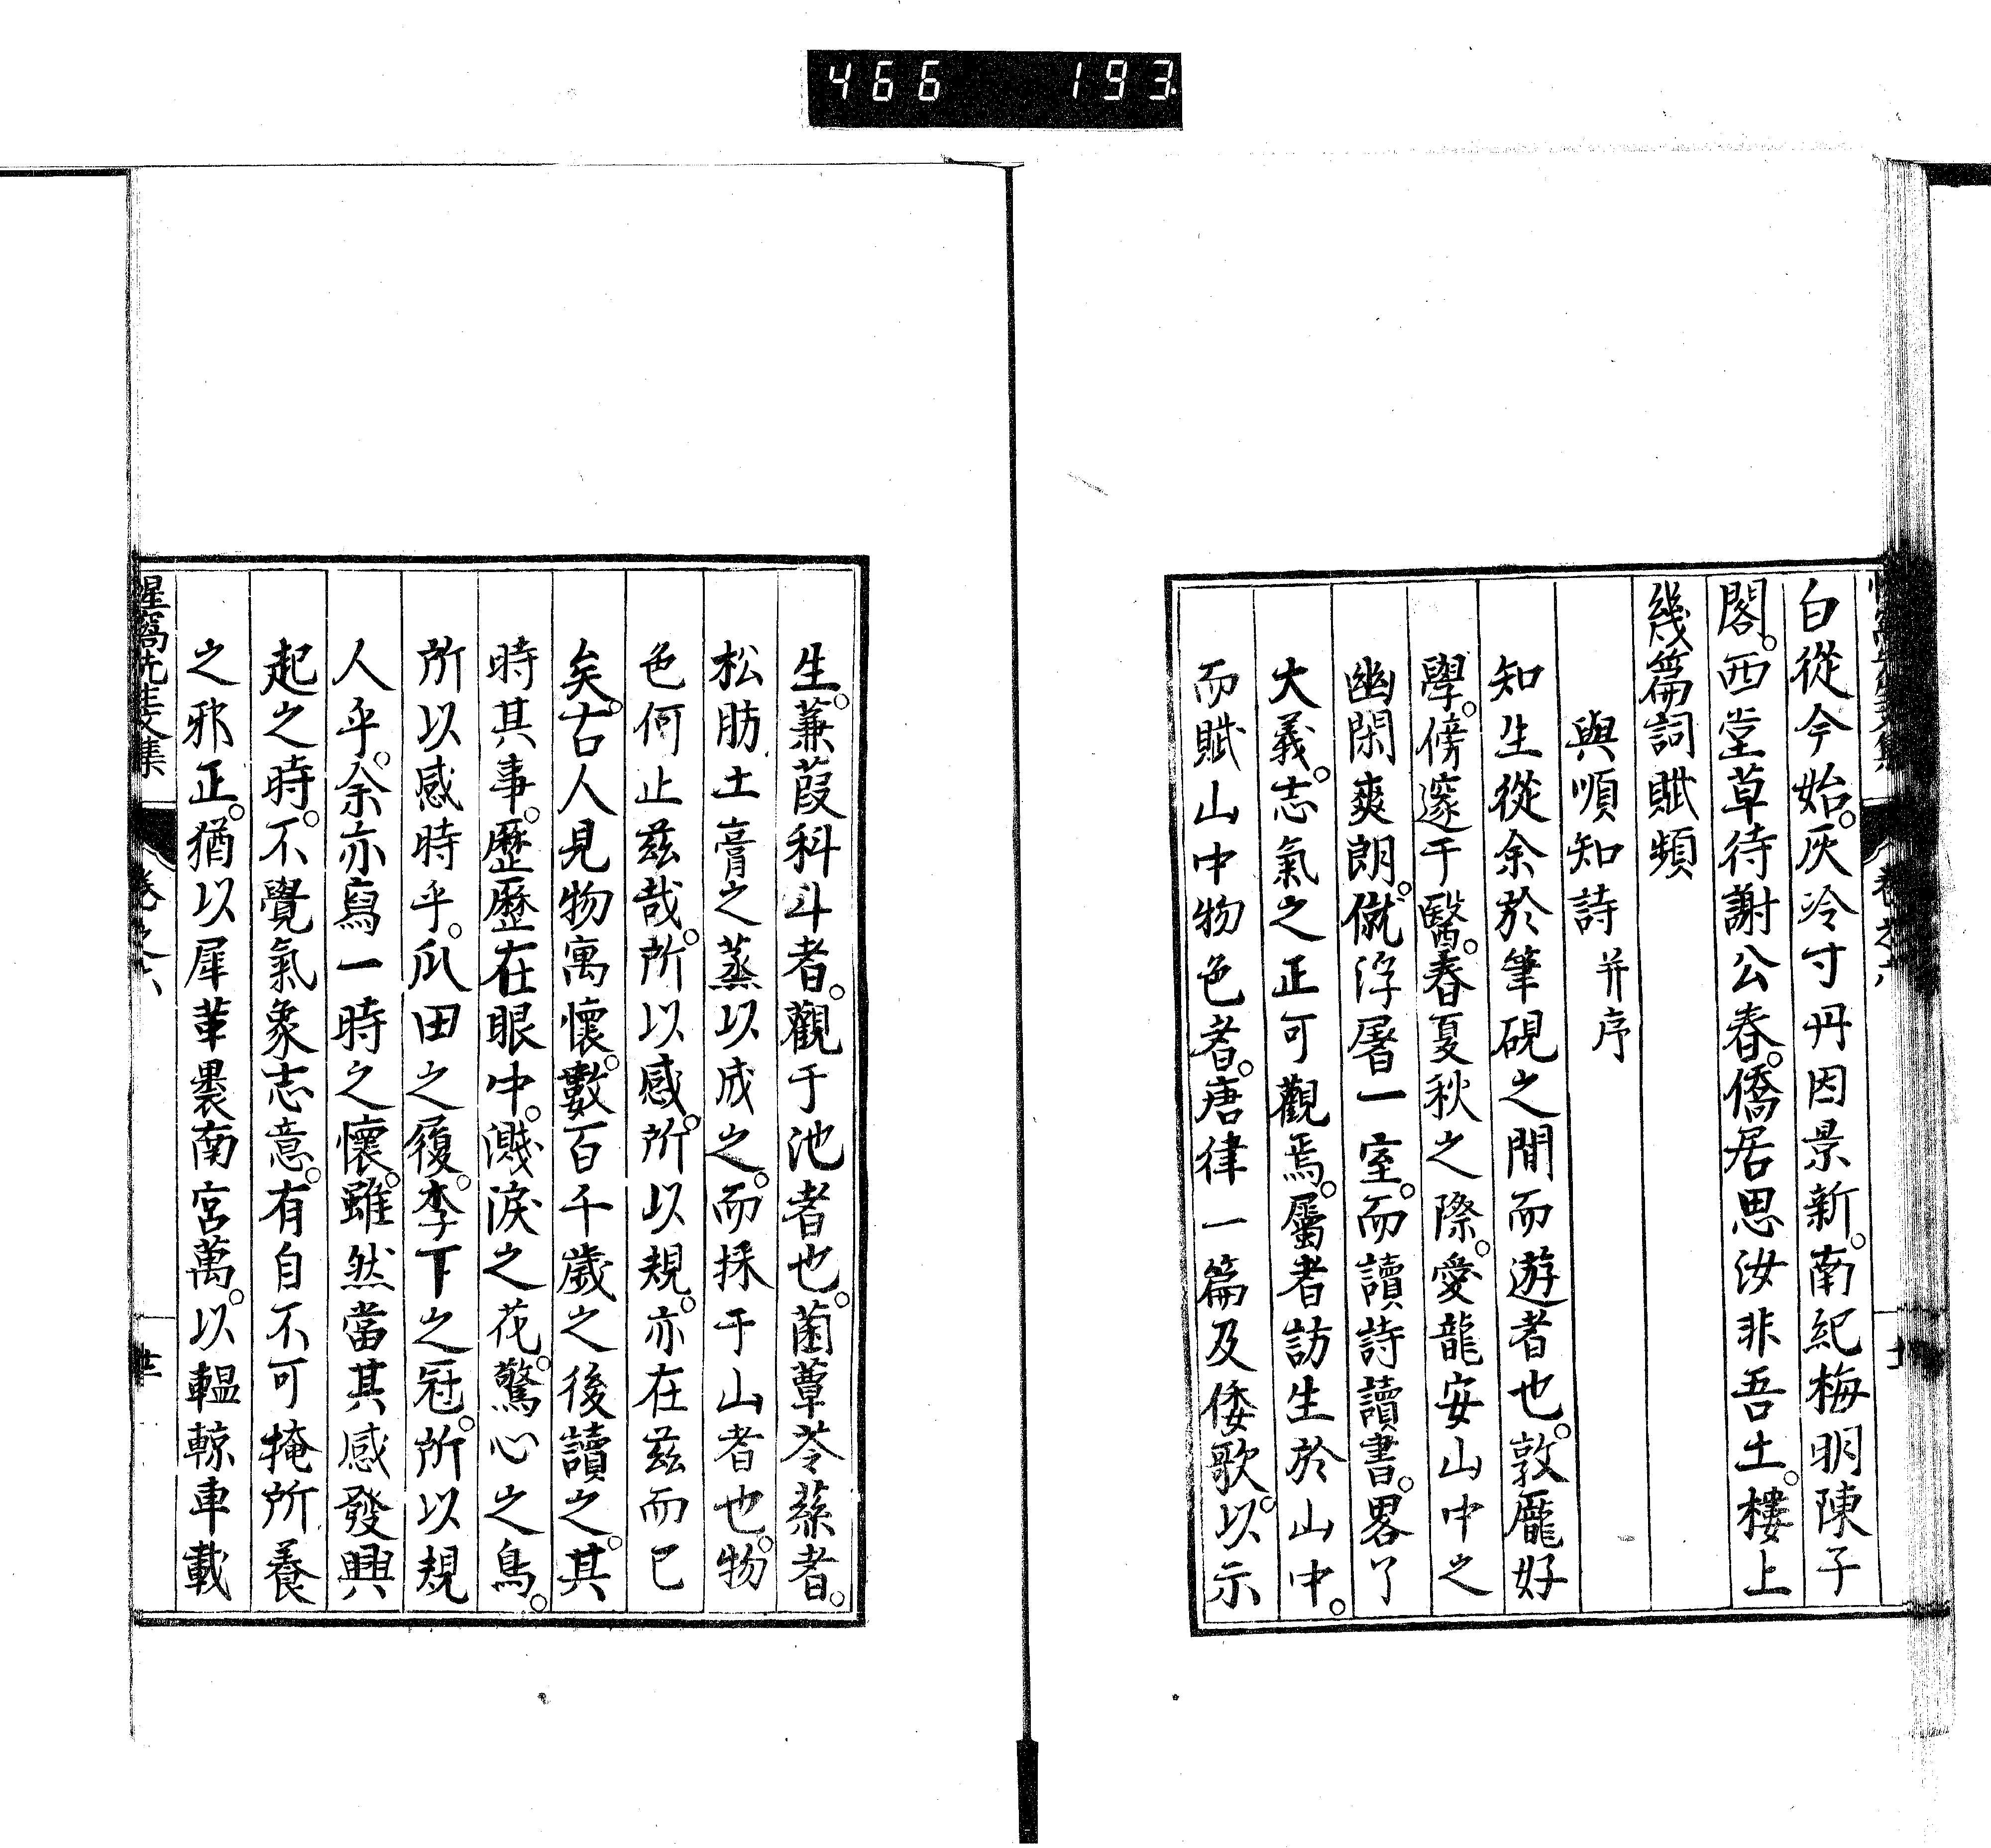 466 193
白從今始。灰冷寸丹因景新。南紀梅明陳子
閣。西堂草待謝公春。僑居思汝非吾土。樓上
幾篇詞賦頻
與順知詩并序
知生從余於筆硯之間而遊者也。敦龐好
學。傍邃于醫。春夏秋之際。愛龍安山中之
幽閑爽朗。僦浮屠一室。而讀詩讀書。畧了
大義。志氣之正可觀焉。屬者訪生於山中。
而賦山中物色者。唐律一篇及倭歌。以示
生。蒹葭科斗者。觀于池者也。菌蕈苓蕬者。
松肪土膏之蒸以成之。而採于山者也。物
色何止茲哉。所以感。所以規。亦在茲而已
矣。古人見物寓懷。數百千歲之後讀之。其
時其事。歷歷在眼中。濺淚之花。驚心之鳥。
所以感時乎。瓜田之履。李下之冠。所以規
人乎。余亦寫一時之懷。雖然當其感發興
起之時。不覺氣象志意。有自不可掩所養
之邪正。猶以犀革褁南宮萬。以轀輬車載
惺窩先生文集 卷之六